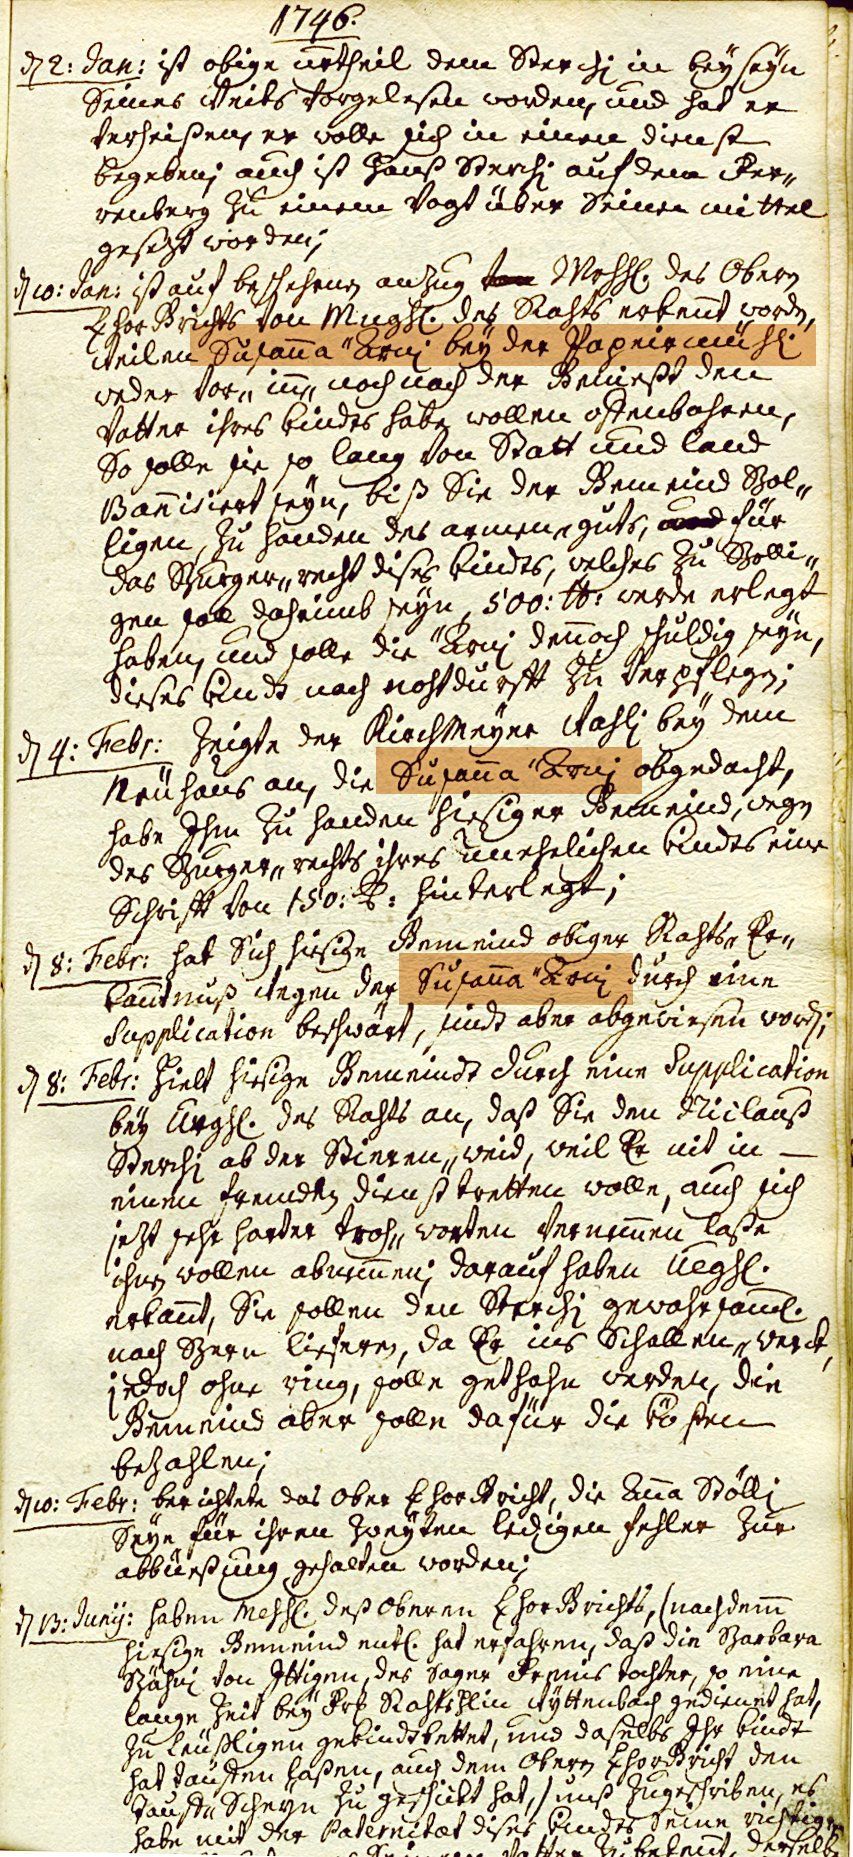 1746.
d 2: Jan: ist obige urtheil dem Sterchj in beyseyn
Seines Weibs vorgelesen worden, und hat er
verheißen, er wolle sich in einen dienst
begeben; auch ist Hanß Sterchj auf dem Fer„
renberg zu einem Vogt über Seine mittel
gesezt worden;
d 10: Jan: ist auf beschehenen anzug MeHhl. des Obern
ChorGrichts von MngHl. des Rahts erkent worden,
weilen Susanna Ärnj bey der Papeirmühlj
weder vor„ in„ noch nach der Geniest den
Vatter ihres kindes habe wollen offenbahren,
So solle sie so lang von Statt und land
Bannisiert seyn, biß Sie der Gemeind Bol„
ligen, zu handen des armen„guts, für
das Burger„recht dises kindes, welches zu Bolli„
gen soll daheimb seyn, 500: lb: werde erlegt
haben, und solle die Ärnj dennoch schuldig seyn,
dieses kindt nach nohtdurfft zu verpflegen;
d 4: Febr: zeigte der KirchMeyer Stahlj bey dem
Neühaus an, die Susanna Ärnj obgedacht,
habe Jhm zu handen hiesiger Gemeind, wegen
des Burger„rechts ihres unehelichen kindes eine
Schrifft von 150: hinterlegt;
d 8: Febr: hat Sich hiesige Gemeind obiger Rahts„Er„
kantnuß wegen der Susanna Ärnj durch eine
Supplication beschwärt, sindt aber abgewiesen worden;
d 8: Febr: hielt hiesige Gemeindt durch eine Supplication
bey UngHl. des Rahts an, daß Sie den Niclauß
Sterchj ab der Stieren„weid, weil Er nit in
einen frembden dienst tretten wolle, auch sich
jezt sehr harter troh„worten vernemmen laße
ihnen wollen abnemmen; darauf haben UegHl.
erkant, Sie sollen den Sterchj gewahrsaml.
nach Bern lieferen, da Er ins Schallen„werck,
jedoch ohne ring, solle gethahn werden, die
Gemeind aber solle dafür die kösten
bezahlen;
d 10: Febr: berichtete das Ober ChorGricht, die Anna Stöllj
Seye für ihren zweyten ledigen fehler zur
abbüeßung gehalten worden;
d 13: Junij: haben MeHhl. deß Oberen ChorGrichts, (nachdemm
hiesige Gemeind entl. hat erfahren, daß die Barbara
Bähnj von Jttigen, des Sager tochter, so eine
lange Zeit bey Fr. Rahtshlin Wyttenbach gedienet hat,
zu Leüßligen gekindtbettet, und daselbs Jhr kindt
hat tauffen laßen, auch dem Obern ChorGricht den
tauff„Scheyn zu geschickt hat,) unß zugeschriben, es
habe mit der Paternitæt dises kindes Seine richtige
Vatter zu bekent, derselbe